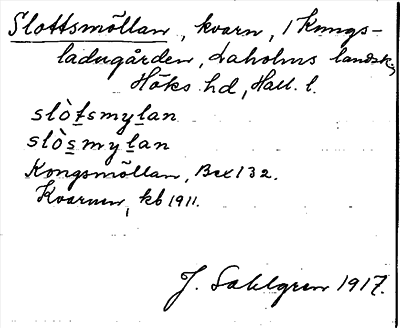 Slottsmöllan, kvarn, i Kungs-
ladugården, Laholms landsk.,
Höks hd, Hall. l.
slòt̲smyl̲an
slòs̲myl̲an
Kongsmöllan, Bex 132.
Kvarnen, kb 1911.
J. Sahlgren 1917.